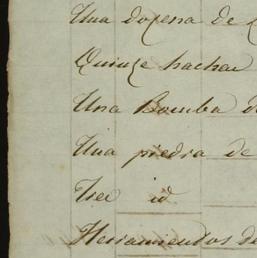 Una dozena de
Quinze hachas
Una Bomba de
Una piedra de
Tres id
Herramientos de